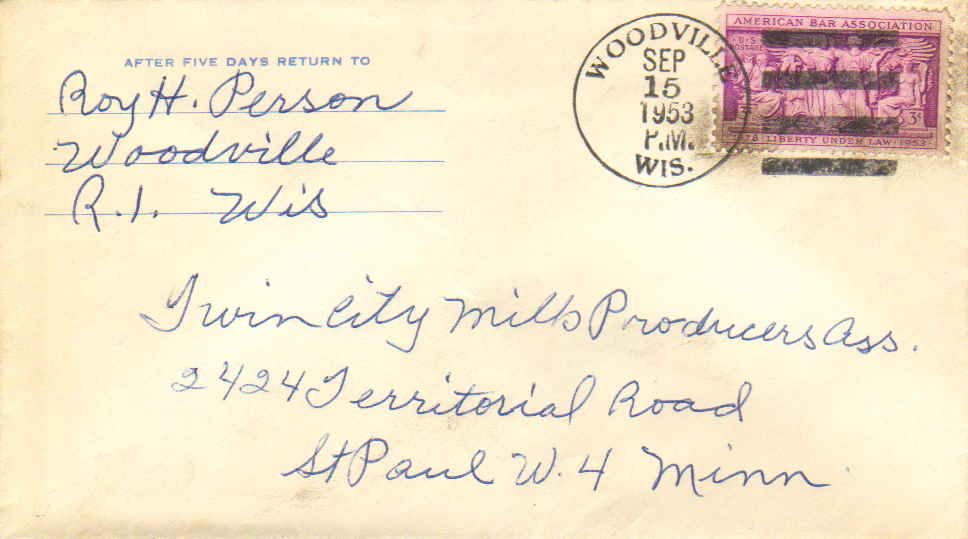 AFTER FIVE DAYS RETURN TO
Roy H. Person
Woodville
R.1. Wis
WOODVILLE
SEP
15
1953
P.M.
WIS.
AMERICAN BAR ASSOCIATION
U·S
POSTAGE
3¢
78 LIBERTY UNDER LAW 1953
Twin City Milk Producers Ass.
2424 Territorial Road
St Paul W. 4 Minn